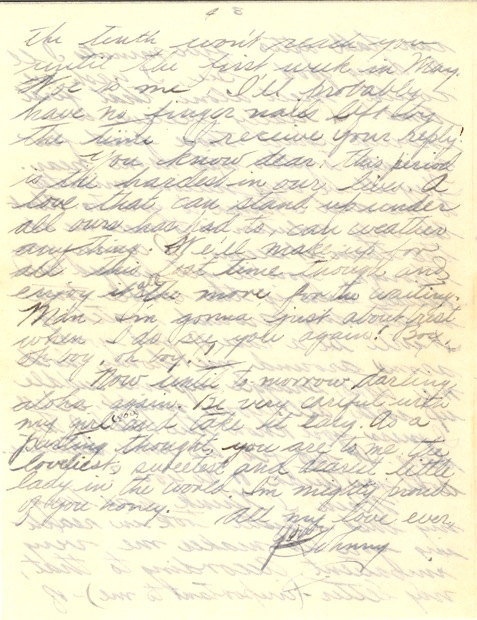 the tenth won't reach you
until the first week in May.
Woe to me! I'll probably
have no finger nails left by
the time I receive your reply!
You know dear, this period
is the hardest in our lives. A
love that can stand up under
all ours has had to, can weather
anything. We'll make up for
all this lost time though and
enjoy it all the more for the waiting.
Man, I'm gonna just about bust
when I do see you again! Boy,
oh boy, oh boy.
Now until to-morrow darling,
aloha again. Be very careful with
my girl and take it easy. As a
parting thought, you are to me the
loveliest, sweetest and dearest little
lady in the world. I'm mighty proud
of you honey.
All my love ever,
Your Johnny